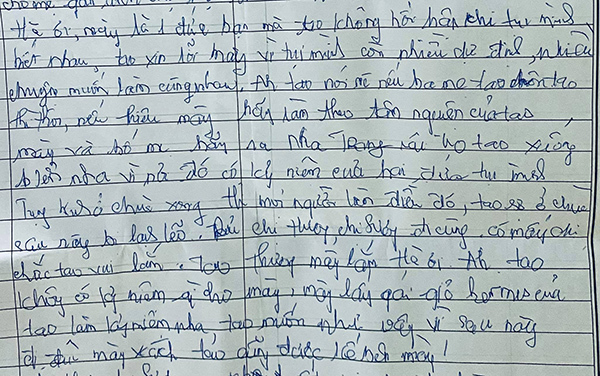 cho mẹ
Hà ơi, mày là 1 đứa bạn mà tao không hối hận khi tụi mình
biết nhau, tao xin lỗi mày vì tụi mình còn nhiều dự định, nhiều
chuyện muốn làm cùng nhau. Ah tao nói mẹ nếu ba mẹ tao chôn tao
thì thôi, nếu thiêu mày hãy làm theo tâm nguyện của tao,
mày và bố mẹ hãy ra nha Trang rải tro tao xuống
biển nha vì nơi đó có kỷ niệm của hai đứa tụi mình
Tùy xong thì mọi người làm điều đó, tao sẽ ở chùa
sau này lạnh lẽo. chị thủy, chị cũng có mấy chị
chắc tao vui lắm. Tao thương mày lắm Hà ơi Ah tao
không có kỷ niệm gì cho mày, mày lấy cái giỏ hermes của
tao làm kỷ niệm nha tao muốn như vậy vì sau này
đi đâu mày xách tao cũng được kế bên mày!